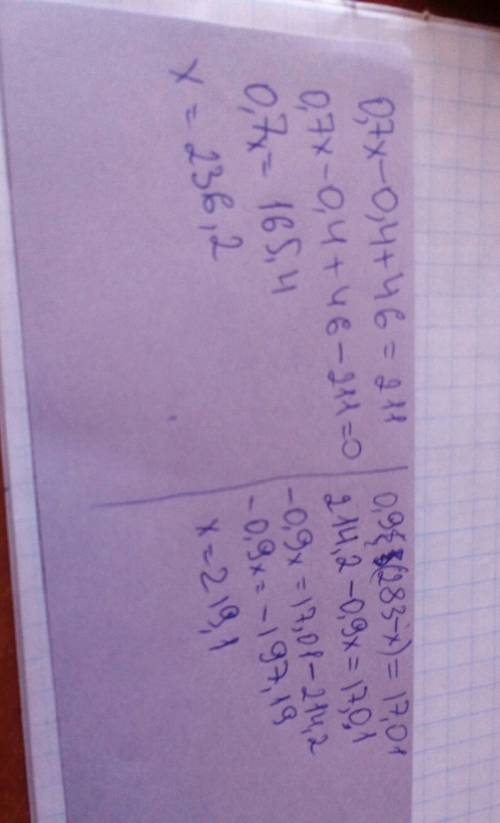 0,7x-0,4+46=211
0,7x-0,4+46-211=0
0,7x=165,4
x=236,2
(283-x)=17,01
214,2-0,9x=17,01
-0,9x=17,01-214,2
-0,9x=-197,19
x=219,1